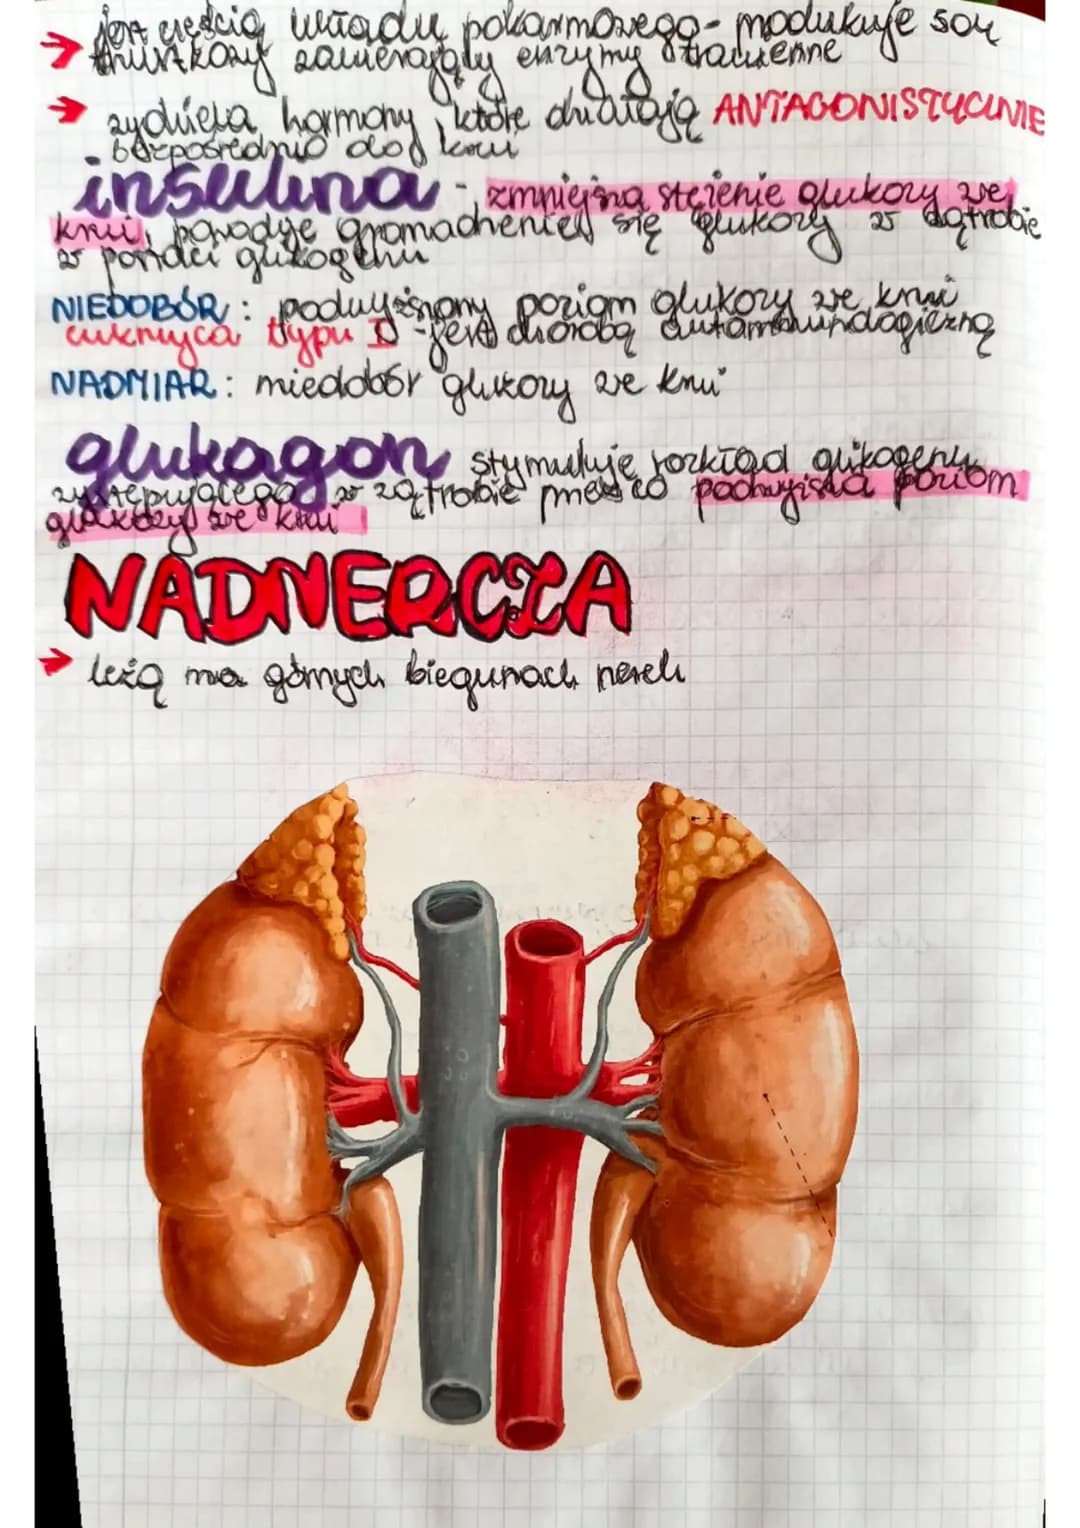 → jest częścią układu pokarmowego - produkuje sok
trzustkowy zawierający enzymy trawienne
→ wydziela hormony, które działają ANTAGONISTYCZNIE
bezpośrednio do krwi
insulina - zmniejsza stężenie glukozy we
krwi, powoduje gromadzenie się glukozy w wątrobie
w postaci glikogenu
NIEDOBÓR: podwyższony poziom glukozy we krwi
cukrzyca typu I - jest chorobą autoimmunologiczną
NADMIAR: niedobór glukozy we krwi
glukagon stymuluje rozkład glikogenu
występującego w wątrobie przez co podwyższa poziom
glukozy we krwi
NADNERCZA
→ leżą na górnych biegunach nerek